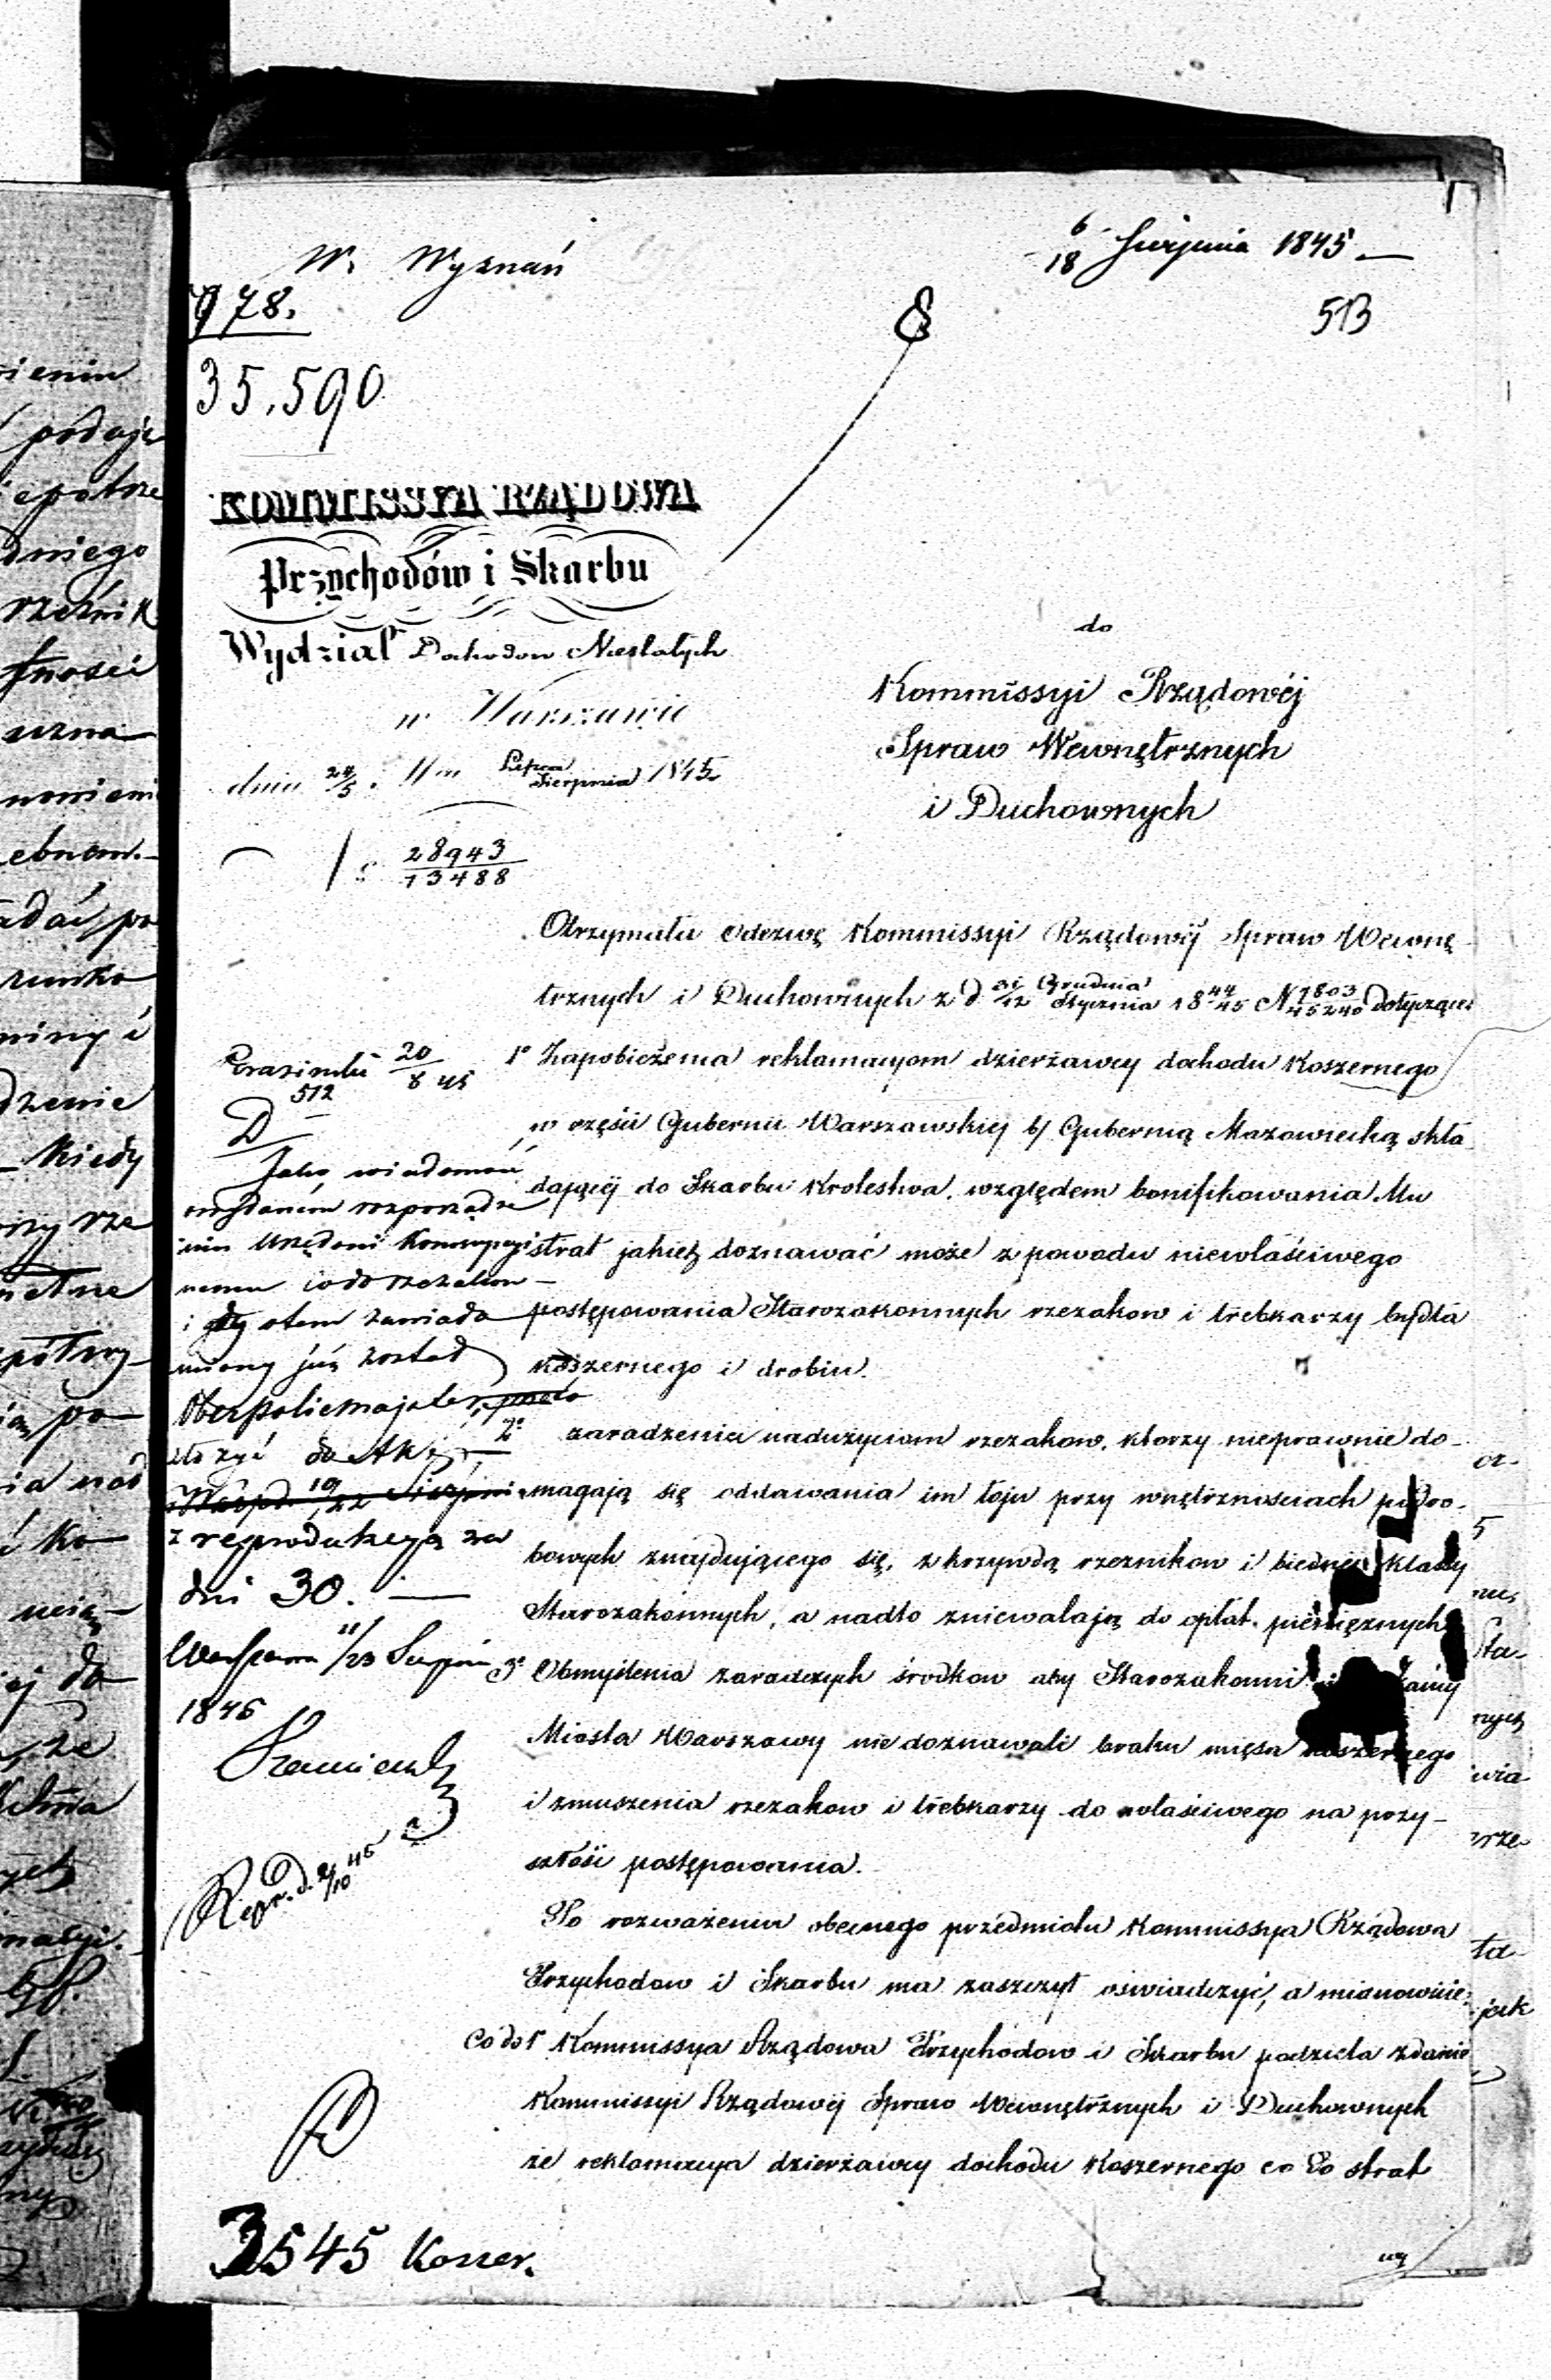 W. Wyznań
6/18 Sierpnia 1845
178.
513
35,590
KOMMISSYA RZĄDOWA
Przychodów i Skarbu
Wydział Dochodow Niestałych
w Warszawie
dnia 24/5 Lipca/Sierpnia 1845
28943/13488
do
Kommissyi Rządowéj
Spraw Wewnętrznych
i Duchownych
Otrzymała odezwę Kommissyi Rządowéj Spraw Wewnę
trznych i Duchownych z d 31/12 Grudnia/Stycznia 18 44/45 N 7803/45240 dotyczące
1º Zapobieżenia reklamacyom dzierżawcy dochodu Koszernego
w części Gubernii Warszawskiej b/ Gubernią Mazowiecką skła
dającej do Skarbu Krolestwa, względem bonifikowania Mu
strat jakich doznawać może z powodu niewłaściwego
postępowania Starozakonnych rzezakow i trebkarzy bydła
koszernego i drobiu.
2º zaradzenia nadużyciom rzezakow, ktorzy nieprawnie do-
magają się oddawania im łoju przy wnętrznościach podro-
bowych znajdującego się, z krzywdą rzeznikow i biednej klassy
Starozakonnych, a nadto zniewalają do opłat pieniężnych
3º Obmyślenia zaradczych środkow aby Starozakonni
Miasta Warszawy nie doznawali braku mięsa koszernego
i zmuszenia rzezakow i trebkarzy do właściwego na przy-
szłość postępowania.
Po rozważeniu obecnego przedmiotu Kommissya Rządowa
Przychodow i Skarbu ma zaszczyt oświadczyć, a mianowicie:
Co do 1º Kommissya Rządowa Przychodow i Skarbu podziela zdanie
Kommissyi Rządowéj Spraw Wewnętrznych i Duchownych
że reklamacya dzierżawcy dochodu Koszernego co do strat
20/8 45
512
D
Jako wiadomość
o wydanem rozporządze
niu Urzędowi Konsumpcyj
nemu co do rzezakow
i gdy o tem zawiado
miony już został
Oberpolicmajster,
złożyć do Akt
z reprodukcyą za
dni 30.
Warszawa 11/23 Sierpnia
1845
Repr. d. 2/10 45
3545 Koszer.